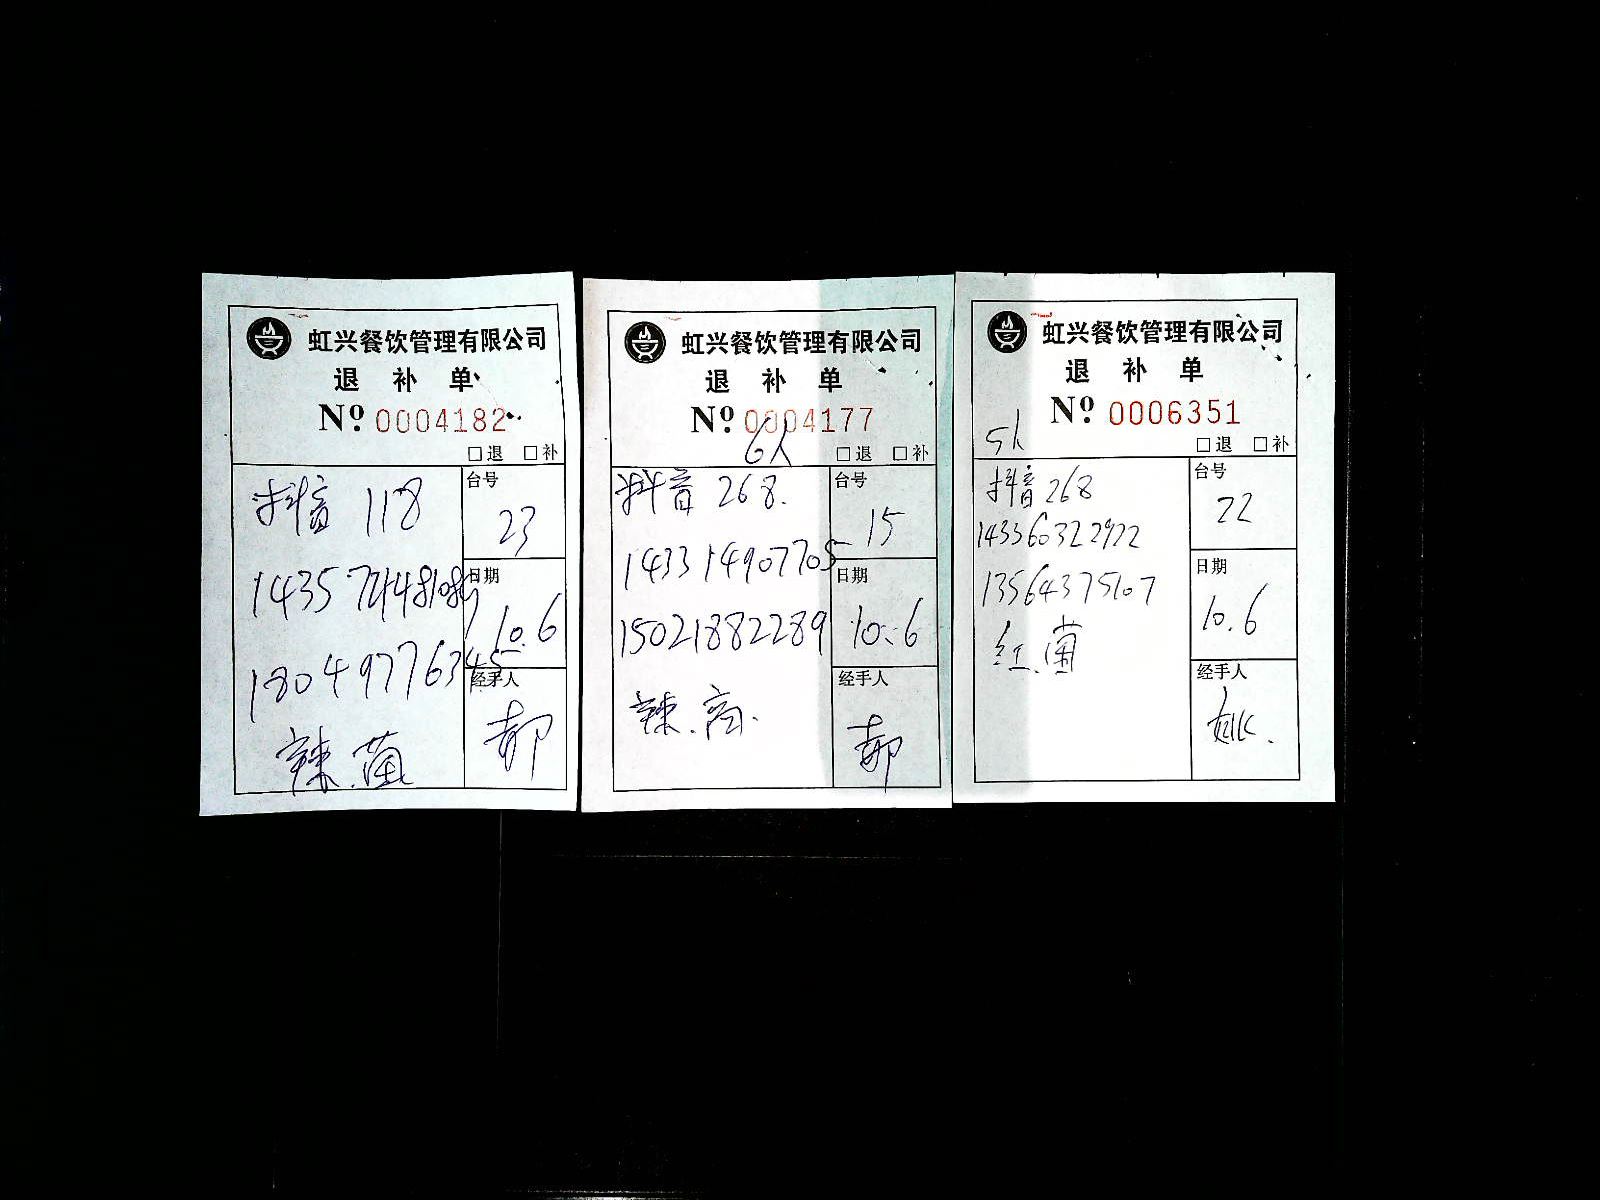 虹兴餐饮管理有限公司
退 补 单
Nº 0004182
□退 □补
抖音 118
台号
23
日期
10.6
18049776345
经手人
辣.菌
郝
虹兴餐饮管理有限公司
退 补 单
Nº 0004177
6人
□退 □补
抖音 268.
台号
15
143314907705
日期
15021882289
10.6
经手人
辣.
郝
虹兴餐饮管理有限公司
退 补 单
Nº 0006351
5人
□退 □补
抖音 268
台号
22
143360322922
13564375107
日期
10.6
红.菌
经手人
姚.